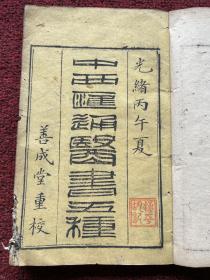 光緒丙午夏
中西匯通醫書五種
善成堂重校